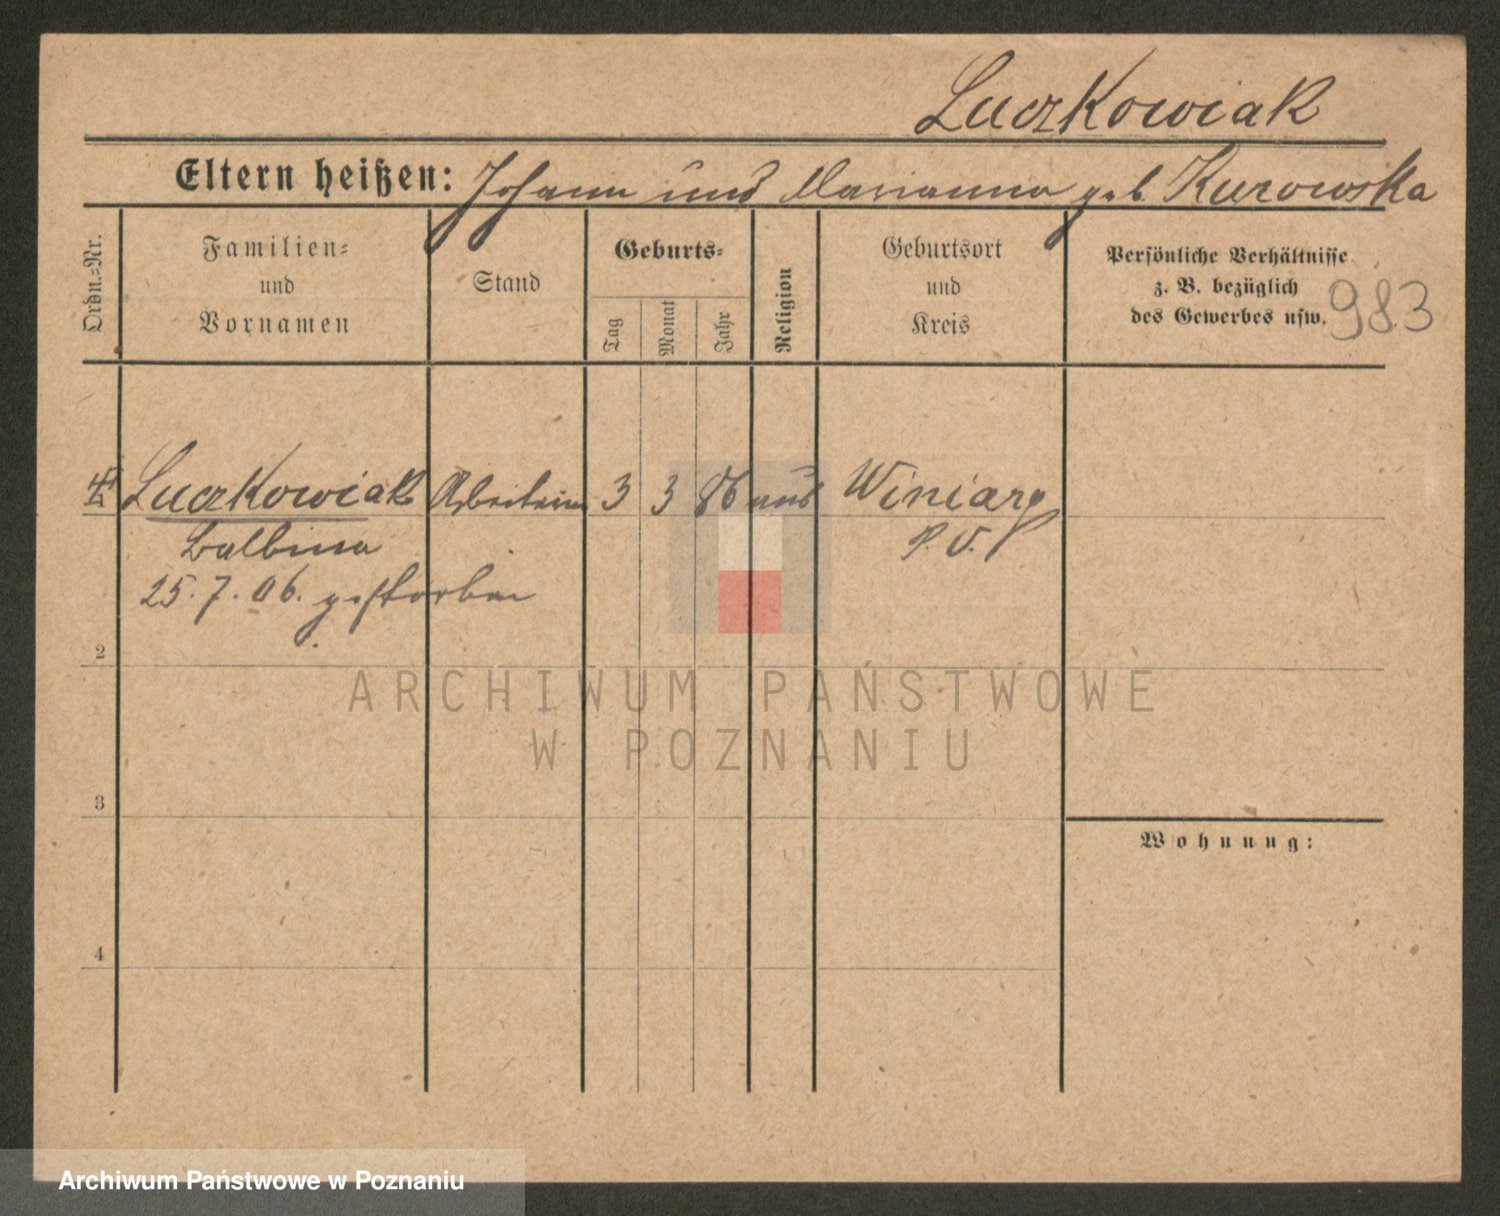 Luczkowiak
Eltern heißen: Johann und Marianna geb. Kurowska
Ordn.=Nr.
Familien=
und
Vornamen
Stand
Geburts=
Tag
Monat
Jahr
Religion
Geburtsort
und
Kreis
Persönliche Verhältnisse
z. B. bezüglich
des Gewerbes usw.
983
Luczkowiak Arbeiterin 3 3 86 Winiary
Balbina P. O.
25. 7. 06. gestorben
2
3
4
Wohnung:
ARCHIWUM PAŃSTWOWE
W POZNANIU
Archiwum Państwowe w Poznaniu